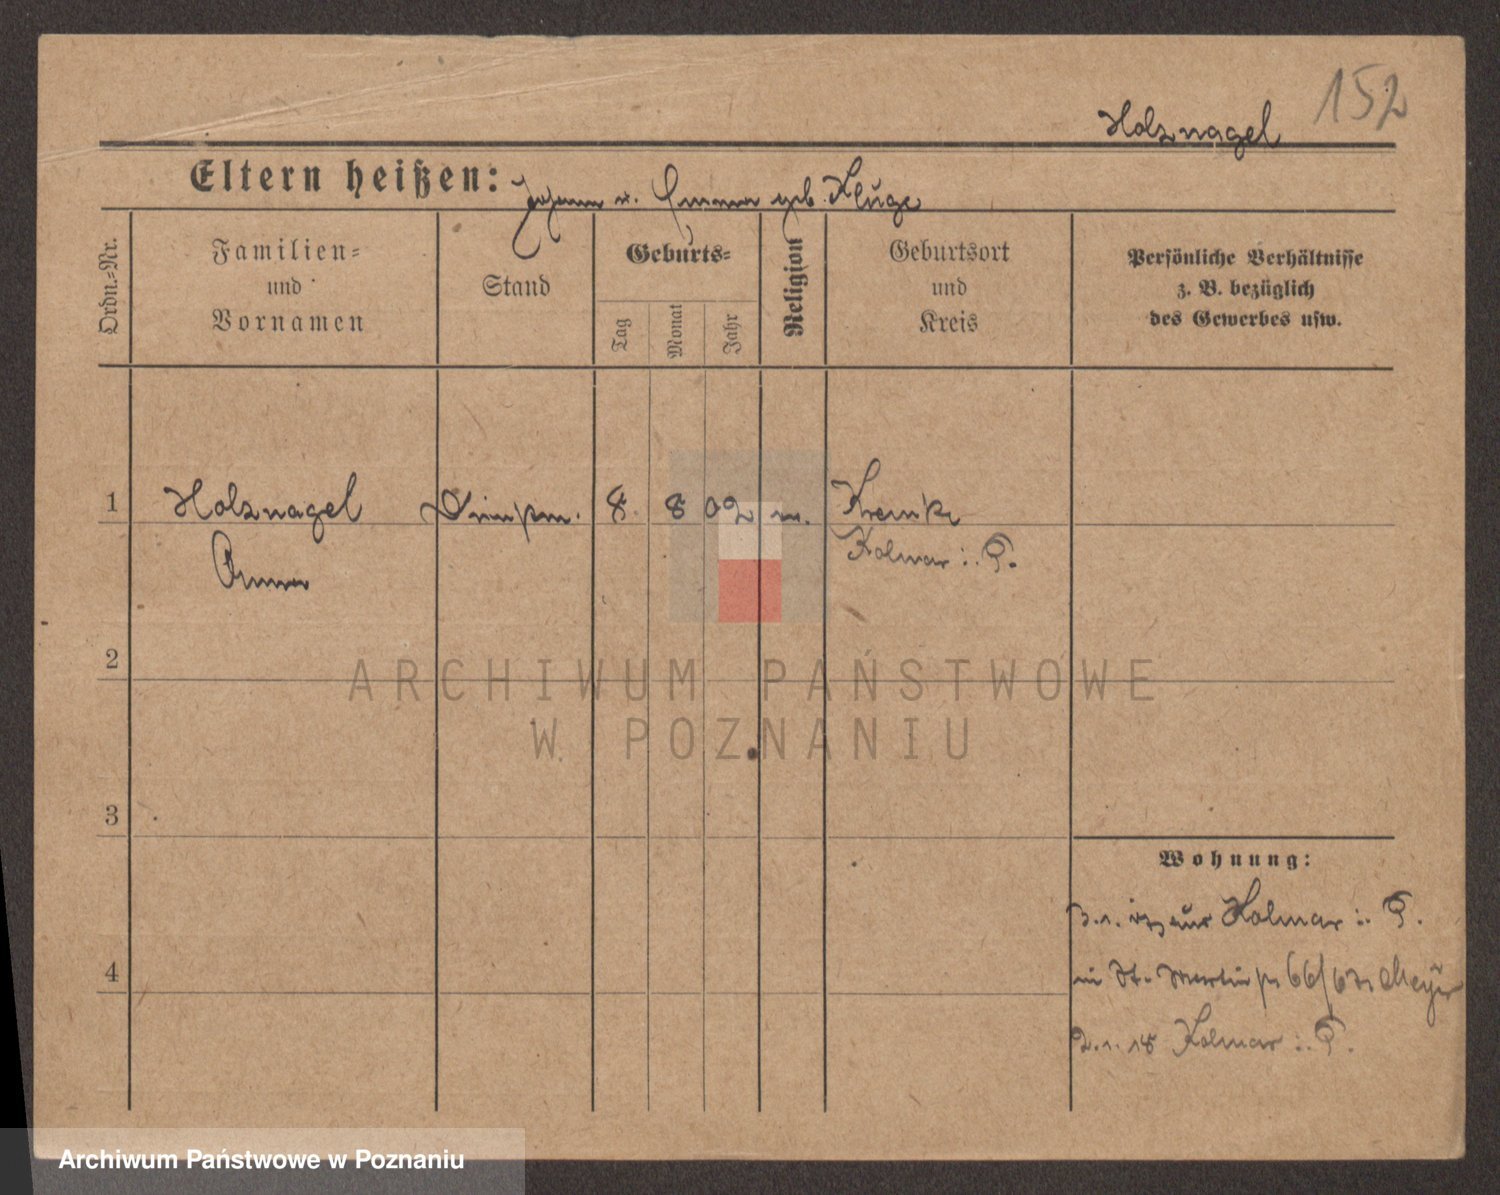 152
Holznagel
Eltern heißen: Johann u. Emma geb. Kluge
Ordn.-Nr.
Familien-
und
Vornamen
Stand
Geburts-
Tag
Monat
Jahr
Religion
Geburtsort
und
Kreis
Persönliche Verhältnisse
z. B. bezüglich
des Gewerbes usw.
1 Holznagel 8. 8 02
Anna Kolmar i. P.
2
3
4
Wohnung:
3.1. zur Kolmar i. P.
in St. Martin 66/67 Meyer
2.1.18 Kolmar i. P.
ARCHIWUM PAŃSTWOWE
W POZNANIU
Archiwum Państwowe w Poznaniu